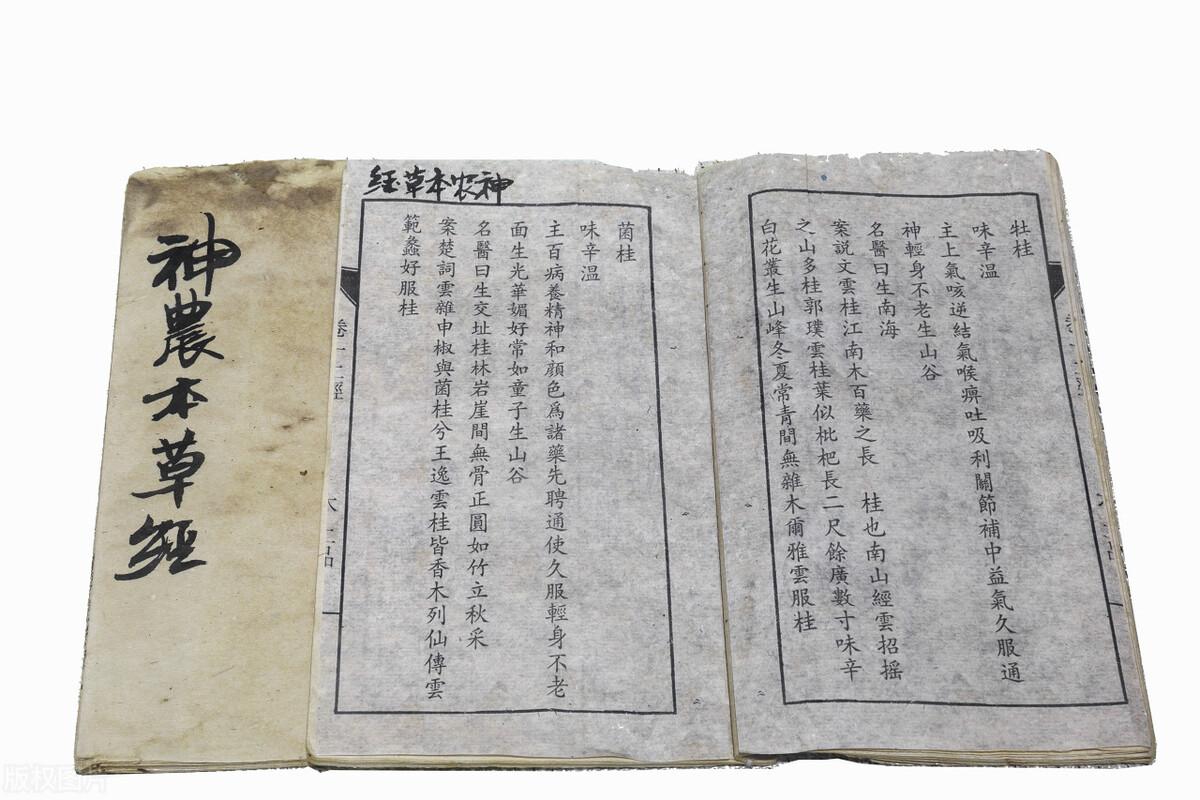 神農本草經
神农本草経
牡桂
味辛温
主上氣咳逆結氣喉痹吐吸利關節補中益氣久服通
神輕身不老生山谷
名醫曰生南海
案説文雲桂江南木百藥之長 桂也南山經雲招摇
之山多桂郭璞雲桂葉似枇杷長二尺餘廣數寸味辛
白花叢生山峰冬夏常青間無雜木爾雅雲服桂
菌桂
味辛温
主百病養精神和顔色爲諸藥先聘通使久服輕身不老
面生光華媚好常如童子生山谷
名醫曰生交址桂林岩崖間無骨正圓如竹立秋采
案楚詞雲雜申椒與菌桂兮王逸雲桂皆香木列仙傳雲
範蠡好服桂
版权图片